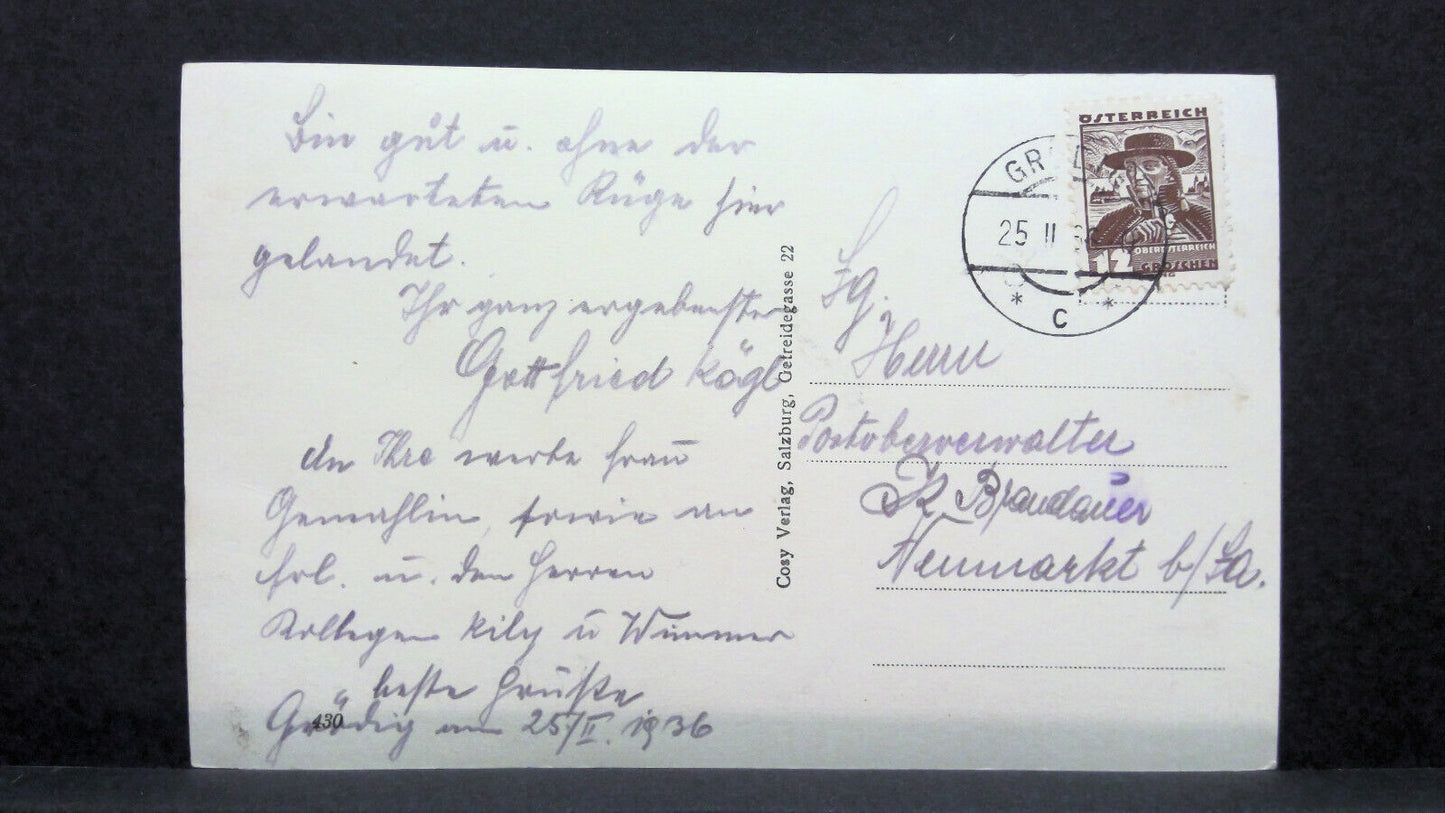 Bin gut u. ohne der
erwarteten Rüge hier
gelandet.
Ihr ganz ergebenster
Gottfried Kögl
An Ihre werte Frau
Gemahlin, sowie an
Frl. u. den Herren
Kollegen u Wimmer
beste Grüße
Grödig am 25/II. 1936
430
Cosy Verlag, Salzburg, Getreidegasse 22
ÖSTERREICH
OBERÖSTERREICH
12 GROSCHEN
25 II
C
Herrn
Postoberverwalter
Brandauer
Neumarkt b/